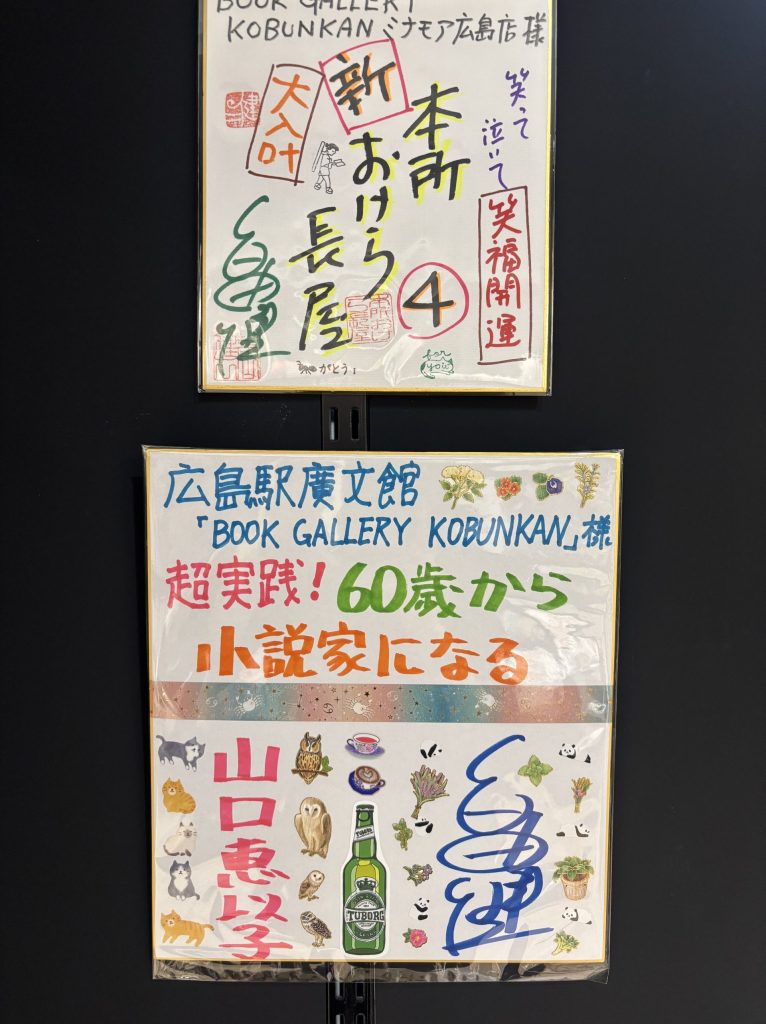 BOOK GALLERY
KOBUNKAN ミナモア広島店 様
笑って
泣いて
笑福開運
本所
新おけら
長屋
④
大入叶
がとう
for
you
広島駅廣文館
「BOOK GALLERY KOBUNKAN」様
超実践！60歳から
小説家になる
山口恵以子
TUBORG